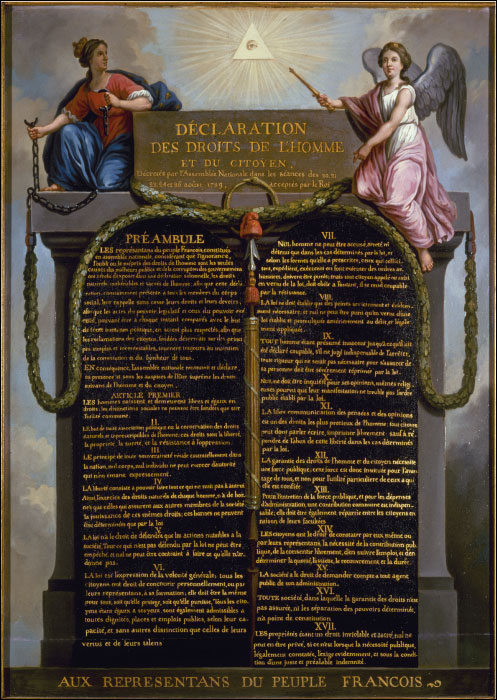 DÉCLARATION
DES DROITS DE L'HOMME
ET DU CITOYEN,
Décrétés par l'Assemblée Nationale dans les séances des 20, 21
23, 24 et 26 août 1789, acceptés par le Roi
PRÉAMBULE
LES représentans du peuple François, constitués
en assemblée nationale, considérant que l'ignorance,
l'oubli ou le mépris des droits de l'homme sont les seules
causes des malheurs publics et de la corruption des gouvernemens
ont résolu d'exposer dans une déclaration solemnelle, les droits
naturels, inaliénables et sacrés de l'homme: afin que cette décla-
ration, constamment présente à tous les membres du corps
social, leur rappelle sans cesse leurs droits et leurs devoirs,
afin que les actes du pouvoir législatif et ceux du pouvoir exé-
cutif, pouvant être à chaque instant comparés avec le but
de toute institution politique, en soient plus respectés; afin que
les réclamations des citoyens, fondées désormais sur des princi-
pes simples et incontestables, tournent toujours au maintien
de la constitution et du bonheur de tous.
EN conséquence, l'assemblée nationale reconnoit et déclare
en présence et sous les auspices de l'Etre suprême les droits
suivans de l'homme et du citoyen.
ARTICLE PREMIER
LES hommes naissent et demeurent libres et égaux en
droits; les distinctions sociales ne peuvent être fondées que sur
l'utilité commune.
II.
LE but de toute association politique est la conservation des droits
naturels et imprescriptibles de l'homme; ces droits sont la liberté,
la propriété, la sureté, et la résistance à l'oppression.
III.
LE principe de toute souveraineté réside essentiellement dans
la nation, nul corps, nul individu ne peut exercer d'autorité
qui n'en émane expressément.
IV.
LA liberté consiste à pouvoir faire tout ce qui ne nuit pas à autrui
Ainsi, l'exercice des droits naturels de chaque homme, n'a de bor-
nes que celles qui assurent aux autres membres de la société
la jouissance de ces mêmes droits; ces bornes ne peuvent
être déterminées que par la loi
V.
LA loi n'a le droit de défendre que les actions nuisibles à la
société. Tout ce qui n'est pas défendu par la loi ne peut être
empêché, et nul ne peut être contraint à faire ce qu'elle n'or-
donne pas.
VI.
LA loi est l'expression de la volonté générale; tous les
citoyens ont droit de concourir personnellement, ou par
leurs représentans, à sa formation; elle doit être la même
pour tous, soit qu'elle protege, soit qu'elle punisse, Tous les cito-
yens étant égaux à ses yeux, sont également admissibles à
toutes dignités, places et emplois publics, selon leur ca-
pacité, et sans autres distinction que celles de leurs
vertus et de leurs talens
VII.
NUL homme ne peut être accusé, arreté ni
détenu que dans les cas déterminés par la loi, et
selon les formes qu'elle a prescrites, ceux qui sollici-
tent, expédient, exécutent ou font exécuter des ordres ar-
bitraires, doivent être punis; mais tout citoyen appelé ou saisi
en vertu de la loi, doit obéir à l'instant, il se rend coupable
par la résistance.
VIII.
LA loi ne doit établir que des peines strictement et évidem-
ment nécessaires, et nul ne peut être puni qu'en vertu d'une
loi établie et promulguée antérieurement au délit, et léga-
lement appliquée.
IX.
TOUT homme étant présumé innocent jusqu'à ce qu'il ait
été déclaré coupable, s'il est jugé indispensable de l'arrêter,
toute rigueur qui ne seroit pas nécessaire pour s'assurer de
sa personne doit être sévèrement réprimée par la loi.
X.
NUL ne doit être inquiété pour ses opinions, mêmes religi-
euses pourvu que leur manifestation ne trouble pas l'ordre
public établi par la loi.
XI.
LA libre communication des pensées et des opinions
est un des droits les plus précieux de l'homme: tout citoyen
peut donc parler, écrire, imprimer librement: sauf à ré-
pondre de l'abus de cette liberté dans les cas déterminés
par la loi.
XII.
LA garantie des droits de l'homme et du citoyen nécessite
une force publique; cette force est donc instituée pour l'avan-
tage de tous, et non pour l'utilité particuliere de ceux à qui
elle est confiée.
XIII.
POUR l'entretien de la force publique, et pour les dépenses
d'administration, une contribution commune est indispen-
sable; elle doit être également répartie entre les citoyens en
raison de leurs facultées
XIV.
LES citoyens ont le droit de constater par eux mêmes ou
par leurs représentans, la nécessité de la contribution pub-
lique, de la consentir librement, d'en suivre l'emploi, et d'en
déterminer la quotité, l'assiette, le recouvrement et la durée.
XV.
LA société a le droit de demander compte à tout agent
public de son administration.
XVI.
TOUTE société, dans laquelle la garantie des droits n'est
pas assurée, ni la séparation des pouvoirs déterminée,
n'a point de constitution.
XVII.
LES propriétés étant un droit inviolable et sacré, nul ne
peut en être privé, si ce n'est lorsque la nécessité publique,
légalement constatée, l'exige évidemment, et sous la condi-
tion d'une juste et préalable indemnité.
AUX REPRESENTANS DU PEUPLE FRANCOIS